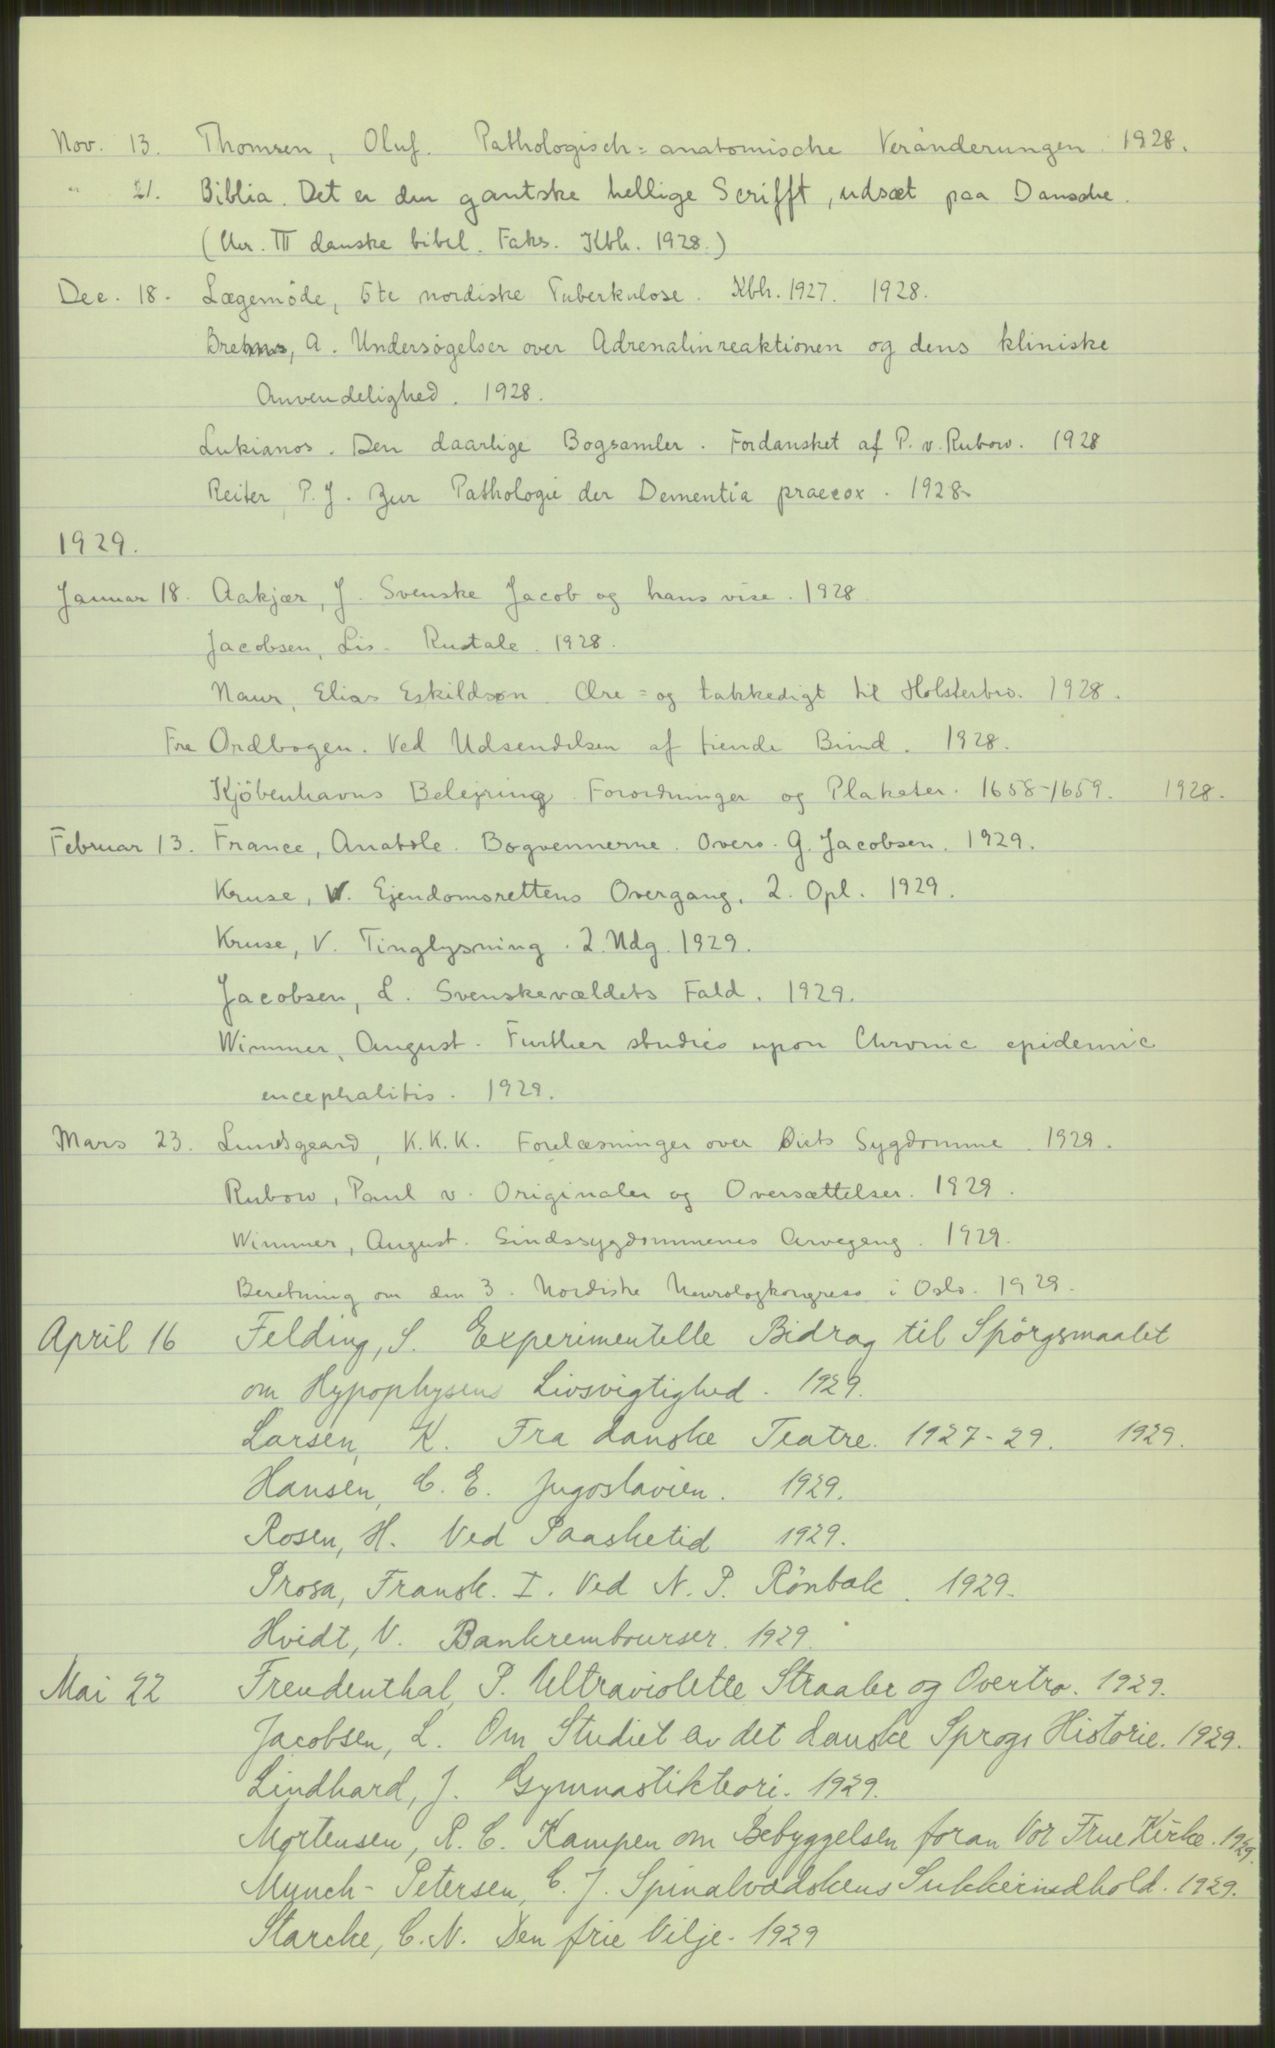 Nov. 13. Thomsen, Oluf. Pathologisch=anatomische Veränderungen. 1928.
" 21. Biblia. Det er den gantske hellige Scrifft, udsæt paa Danske.
(Chr. III danske bibel. Faks. Kbh. 1928.)
Dec. 18. Lægemöde, 5te nordiske Tuberkulose. Kbh. 1927. 1928.
Brems, A. Undersøgelser over Adrenalinreaktionen og dens kliniske
Anvendelighed. 1928.
Lukianos. Den daarlige Bogsamler. Fordansket af P. v. Rubow. 1928
Reiter, P. J. Zur Pathologie der Dementia praecox. 1928
1929.
Januar 18. Aakjær, J. Svenske Jacob og hans vise. 1928
Jacobsen, Lis. Rustale. 1928.
Naur, Elias Eskildsøn. Ære= og takkedigt til Holstebro. 1928.
Fra Ordbogen. Ved Udsendelsen af tiende Bind. 1928.
Kjöbenhavns Belejring. Forordninger og Plakater. 1658-1659. 1928.
Februar 13. France, Anatole. Bogvennerne. Overs. G. Jacobsen. 1929.
Kruse, V. Ejendomsrettens Overgang. 2. Opl. 1929.
Kruse, V. Tinglysning. 2. Udg. 1929.
Jacobsen, L. Svenskevældets Fald. 1929.
Wimmer, August. Further studies upon Chronic epidemic
encephalitis. 1929.
Mars 23. Lundsgaard, K.K.K. Forelæsninger over Öiets Sygdomme. 1929.
Rubow, Paul v. Originaler og Oversættelser. 1929.
Wimmer, August. Sindssygdommenes Arvegang. 1929.
Beretning om den 3. Nordiske Neurologkongress i Oslo. 1929.
April 16 Felding, S. Experimentelle Bidrag til Spörgsmaalet
om Hypophysens Livsvigtighed. 1929.
Larsen, K. Fra danske Teatre. 1927-29. 1929.
Hansen, C. E. Jugoslavien. 1929.
Rosen, H. Ved Paasketid 1929.
Prosa, Fransk. I. Ved N. P. Rönbäk. 1929.
Hvidt, V. Bankrembourser. 1929.
Mai 22 Freudenthal, P. Ultraviolette Straaler og Overtro. 1929.
Jacobsen, L. Om Studiet av det danske Sprogs Historie. 1929.
Lindhard, J. Gymnastikteori. 1929.
Mortensen, R. C. Kampen om Bebyggelsen foran Vor Frue Kirke. 1929.
Munch-Petersen, C. J. Spinalvädskens Sukkerindhold. 1929.
Starcke, C. N. Den frie Vilje. 1929